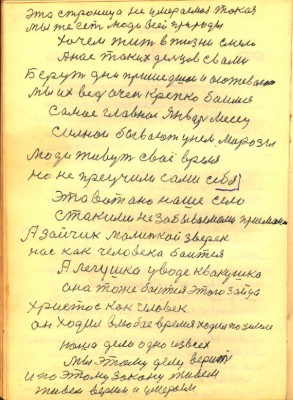 Эта строница не умераемая токая
мы же сет люди всей природы
Хочем жит в жизни смело
А нас таких делов с вами
Берут дни пришедшыи
мы их вед очен крепко баимся
Самое главное Январ месец
Силнои бывают у нем марозы
люди живут своё время
но не преучили сами себя
Это вот оно наше село
стакими не забываемами
А зайчик малинкой зверек
нас как человека баится
А легушка у воде квакушка
она тоже баится этого зайца
Христос как человек
он ходил в любае время ходил по земле
наша дела одно из всех
мы этому делу верим
и по этому закону живем
живем верим и умераем